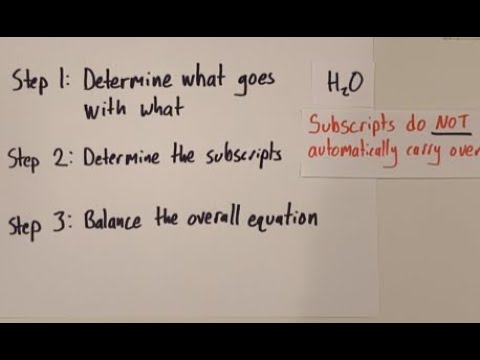 Step 1: Determine what goes
with what
H₂O
Subscripts do NOT
automatically carry over
Step 2: Determine the subscripts
Step 3: Balance the overall equation